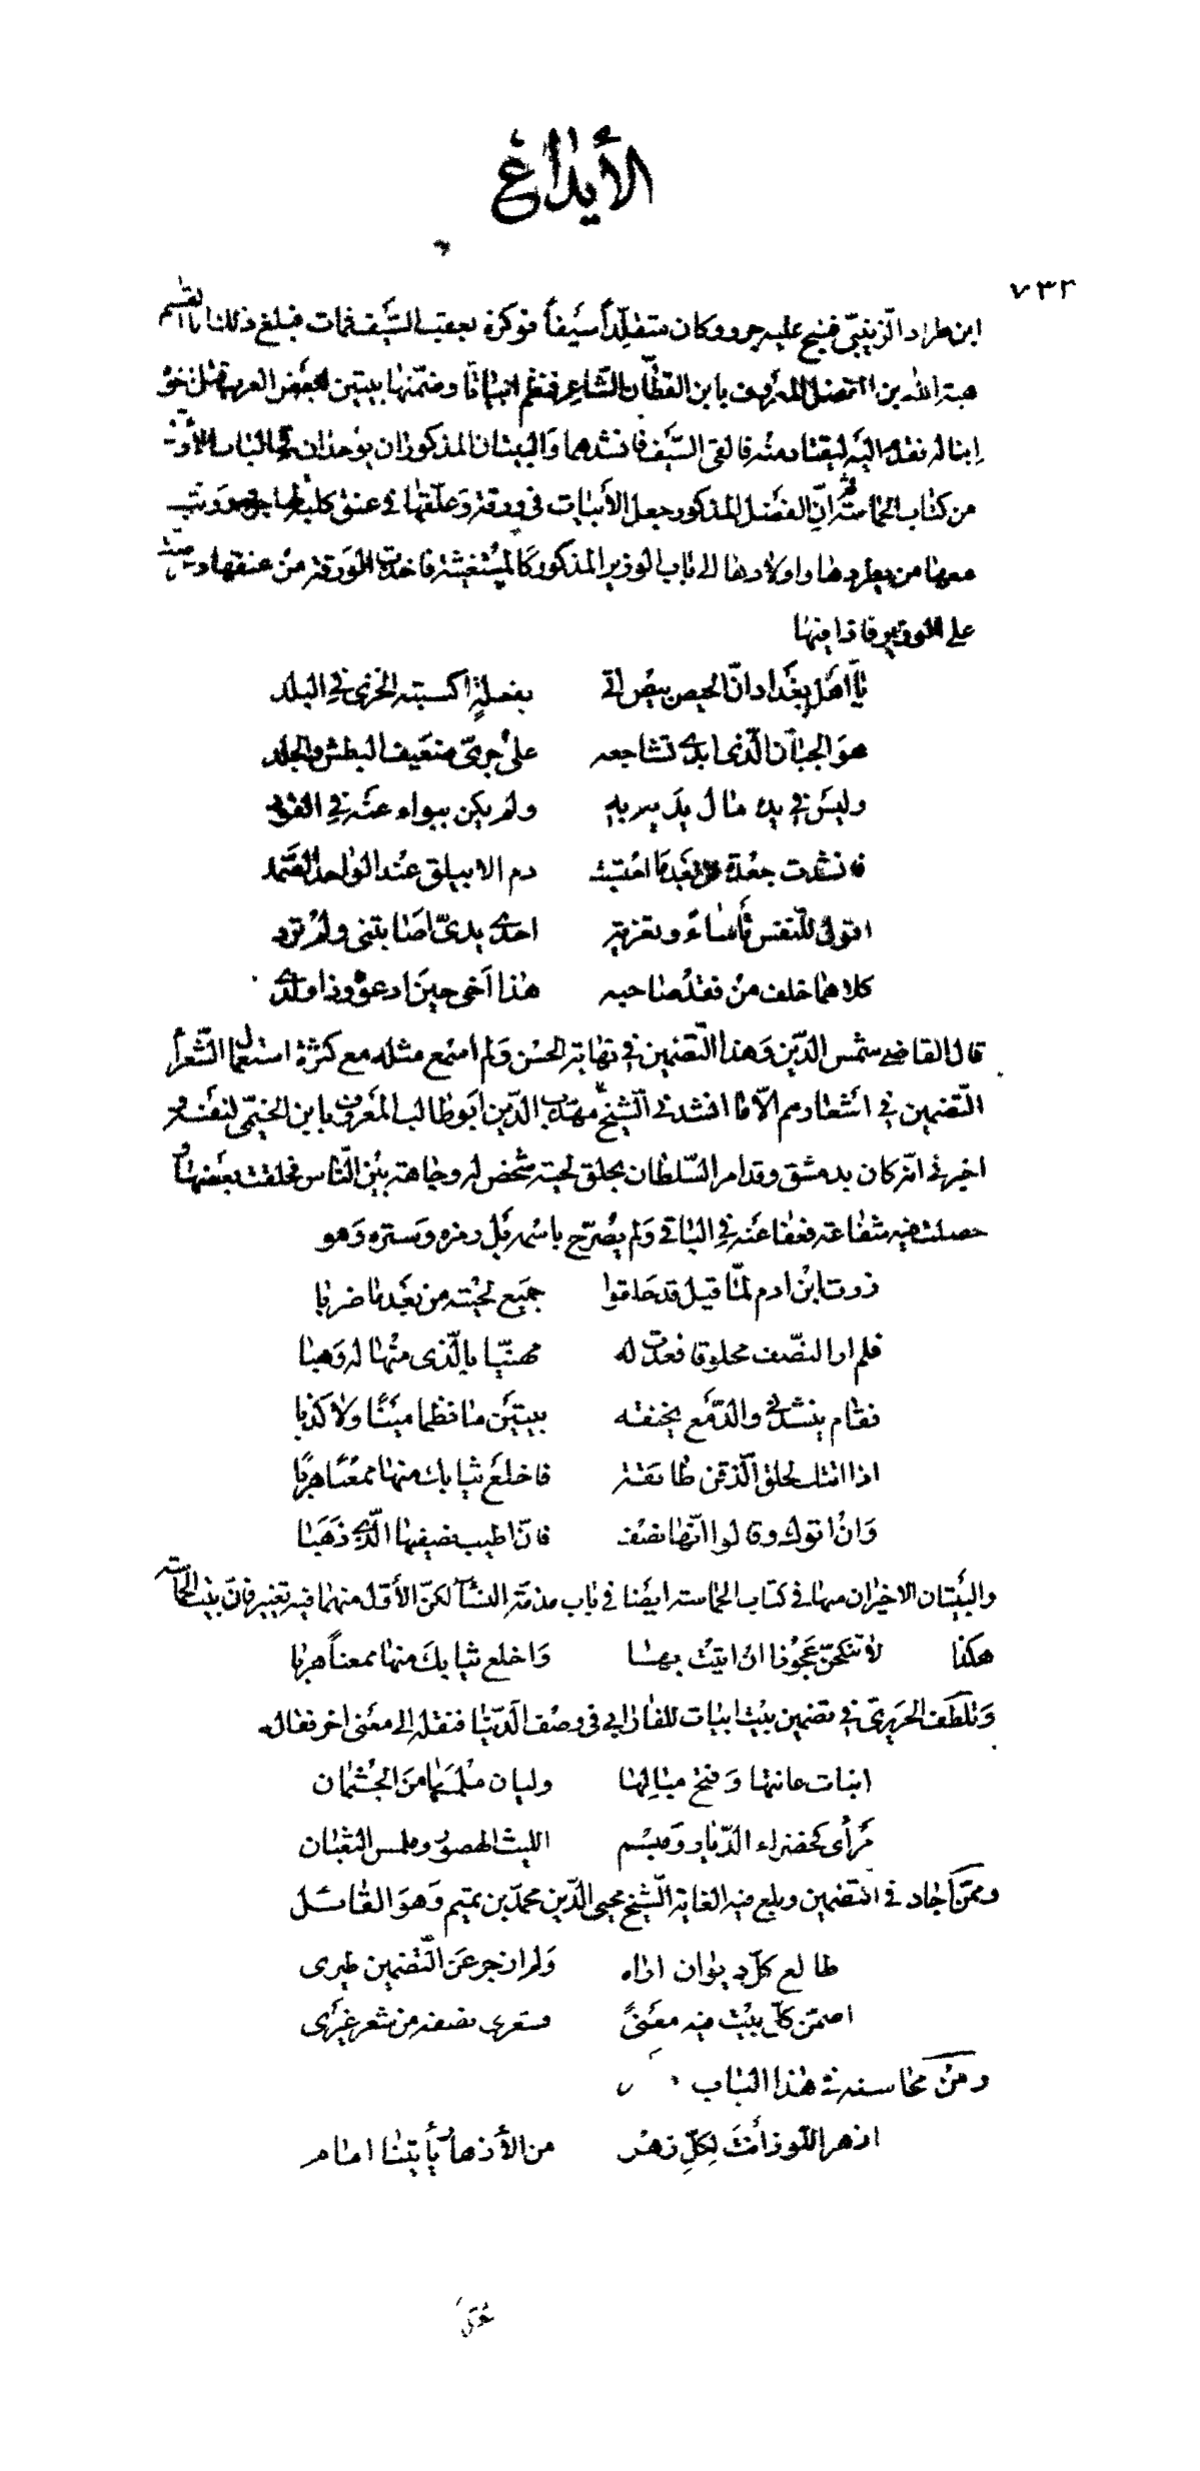 الأيداع
٧٣٢
ابن طراد الزينبيّ فنبح عليه جرو وكان متقلّداً سيفاً فوكزه بعقب السّيف فمات فبلغ ذلك ابا القسم
هبة الله بن الفضل المعروف بابن القطّان الشّاعر فنظم ابياتا وضمّنها بيتين لبعض العرب قتل اخوه
ابنا له فقدم اليه ليقتاد منه فالقى السّيف فانشدهما والبيتان المذكوران يوجدان في الباب الأوّل
من كتاب الحماسة ثم انّ الفضل المذكور جعل الأبيات في ورقة وعلّقها في عنق كلبة لها جرو ورتب
معها من يطردها واولادها الى باب الوزير المذكور كالمستغيثة فاخذت الورقة من عنقها وعرضت
على الوزير فاذا فيها
يا اهل بغداد انّ الحيص بيص اتى بفعلة اكسبته الخزي في البلد
هو الجبان الّذي ابدى تشاجعه على جريّ ضعيف البطش والجلد
وليس في يده مال يديه به ولم يكن ببواء عنه في القود
فانشدت جعدة من بعد ما احتسبت دم الابيلق عند الواحد الصّمد
اقول للنّفس تأساء وتعزية احدى يديّ اصابتني ولم ترد
كلاهما خلف من فقد صاحبه هذا اخي حين ادعوه وذا ولدي
قال القاضي شمس الدّين وهذا التّضمين في نهاية الحسن ولم اسمع مثله مع كثرة استعمال الشّعراء
التّضمين في اشعارهم الّا ما انشدني الشّيخ مهذّب الدّين ابو طالب المعروف بابن الخيمي لنفسه و
اخبرني انّه كان بدمشق وقد امر السّلطان بحلق لحية شخص له وجاهة بين النّاس فحلقت بعضها و
حصلت فيه شفاعة فعفا عنه في الباقي ولم يصرّح باسمه بل رمزه وستره وهو
زرت ابن ادم لمّا قيل قد حلقوا جميع لحيته من بعد ما ضربا
فلم ار النّصف محلوقا فعدت له مهنّيا بالّذي منها له وهبا
فقام ينشدني والدّمع يخنقه ببيتين ما نظما مينًا ولا كذبا
اذا اتتك لحلق الذّقن طائفة فاخلع ثيابك منها ممعنًا هربًا
وان اتوك وقالوا انّها نصف فانّ اطيب نصفيها الّذي ذهبا
والبيتان الاخيران منها في كتاب الحماسة ايضا في باب مذمّة النّساء لكنّ الأوّل منهما فيه تغيير فانّ بيت الحماسة
هكذا لا تنكحنّ عجوزا ان اتيت بها واخلع ثيابك منها ممعناً هربا
وتلطّف الحريري في تضمين بيت ابيات للفارابي في وصف الدّنيا فنقله الى معنى اخر فقال
انبات عانتها وفتح مبالها ولبان ملمسها من الجثمان
مرأى كخضراء الدّيار ومبسم الليث الهصور وملمس الثعبان
وممّن اجاد في التّضمين وبلغ فيه الغاية الشّيخ محيي الدّين محمّد بن تميم وهو القائل
طالع كلّ ديوان اراه ولم ازجر عن التّضمين طيرى
اضمّن كلّ بيت فيه معنىً فشعرى نصفه من شعر غيرى
ومن محاسنه في هذا الباب
ازهر اللّوز أنت لكلّ زهر من الأزهار يأتينا امام